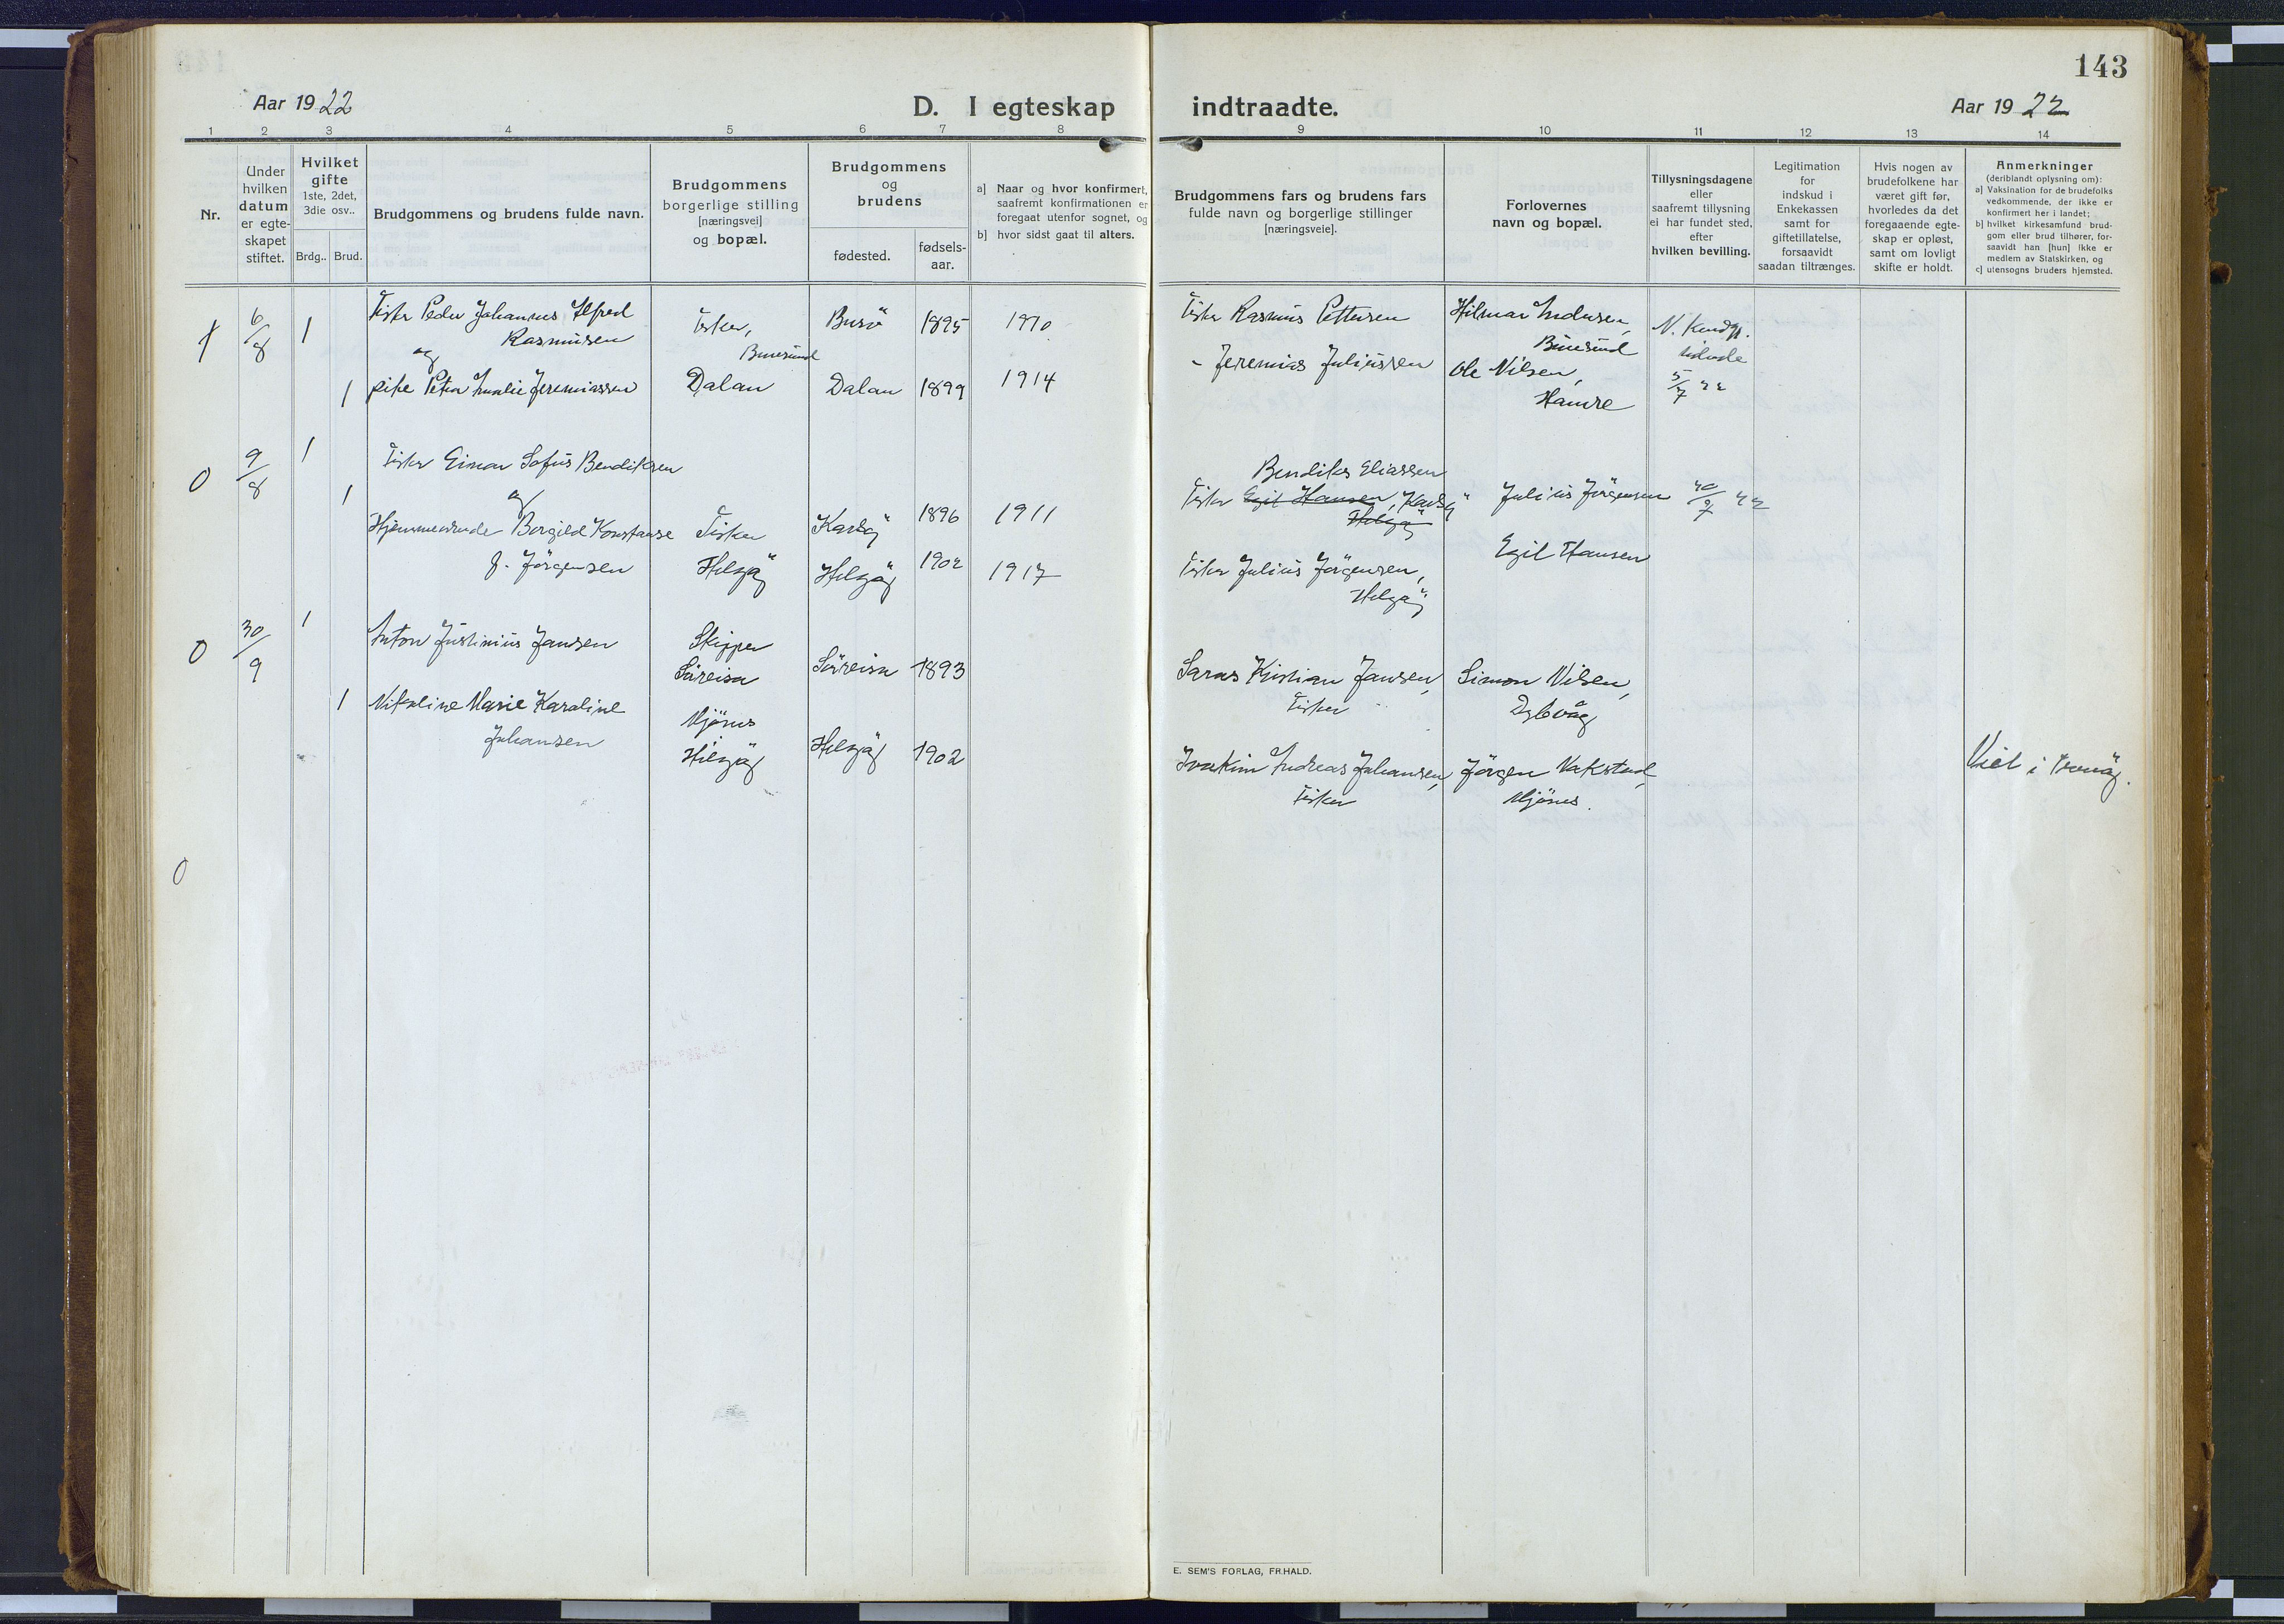 143
Aar 1922
D. I egteskap indtraadte.
Aar 1922
1 2 3 4 5 6 7 8 9 10 11 12 13 14
Nr.
Under
hvilken
datum
er egte-
skapet
stiftet.
Hvilket
gifte
1ste, 2det,
3die osv..
Brdg.. Brud.
Brudgommens og brudens fulde navn.
Brudgommens
borgerlige stilling
[næringsvei]
og bopæl.
Brudgommens
og
brudens
fødested.
fødsels-
aar.
a] Naar og hvor konfirmert,
saafremt konfirmationen er
foregaat utenfor sognet, og
b] hvor sidst gaat til alters.
Brudgommens fars og brudens fars
fulde navn og borgerlige stillinger
[næringsveie].
Forlovernes
navn og bopæl.
Tillysningsdagene
eller
saafremt tillysning
ei har fundet sted,
efter
hvilken bevilling.
Legitimation
for
indskud i
Enkekassen
samt for
giftetillatelse,
forsaavidt
saadan tiltrænges.
Hvis nogen av
brudefolkene har
været gift før,
hvorledes da det
foregaaende egte-
skap er opløst,
samt om lovligt
skifte er holdt.
Anmerkninger
(deriblandt oplysning om):
a] Vaksination for de brudefolks
vedkommende, der ikke er
konfirmert her i landet;
b] hvilket kirkesamfund brud-
gom eller brud tilhører, for-
saavidt han [hun] ikke er
medlem av Statskirken, og
c] utensogns bruders hjemsted.
1 6/8 1
Fisker Peder Johannes Alfred
Rasmussen
og
1 pike Petra Amalie Jeremiassen
Fisker,
Burøsund
Dalan
Burø 1895 1910
Dalan 1899 1914
Fisker Rasmus Pettersen
- Jeremias Juliussen
Hilmar Andersen,
Burøsund
Ole Nilsen,
Hamre
5/7 22
0 9/8 1
Fisker Einar Sofus Bendiksen
1 og
Borgild Konstanse
J. Jörgensen
Fisker
Helgöy
Karlsöy 1896 1911
Helgöy 1902 1917
Bendiks Eliassen
Fisker Egil Hansen, Karlsöy
Helgöy
Fisker Julius Jörgensen,
Helgöy
Julius Jörgensen
Egil Hansen
22
0 30/9 1
Anton Justinius Jansen
1 Nikoline Marie Karoline
Johansen
Skipper
Sörreisa
Mjönes
Helgöy
Sörreisa 1893
Helgöy 1902
Kristian Jansen,
Fisker
Joakim Andreas Johansen,
Fisker
Simon Nilsen,
Dybvåg
Jörgen Nakstad,
Mjönes.
Viet i
0
E. SEM'S FORLAG, FR.HALD.